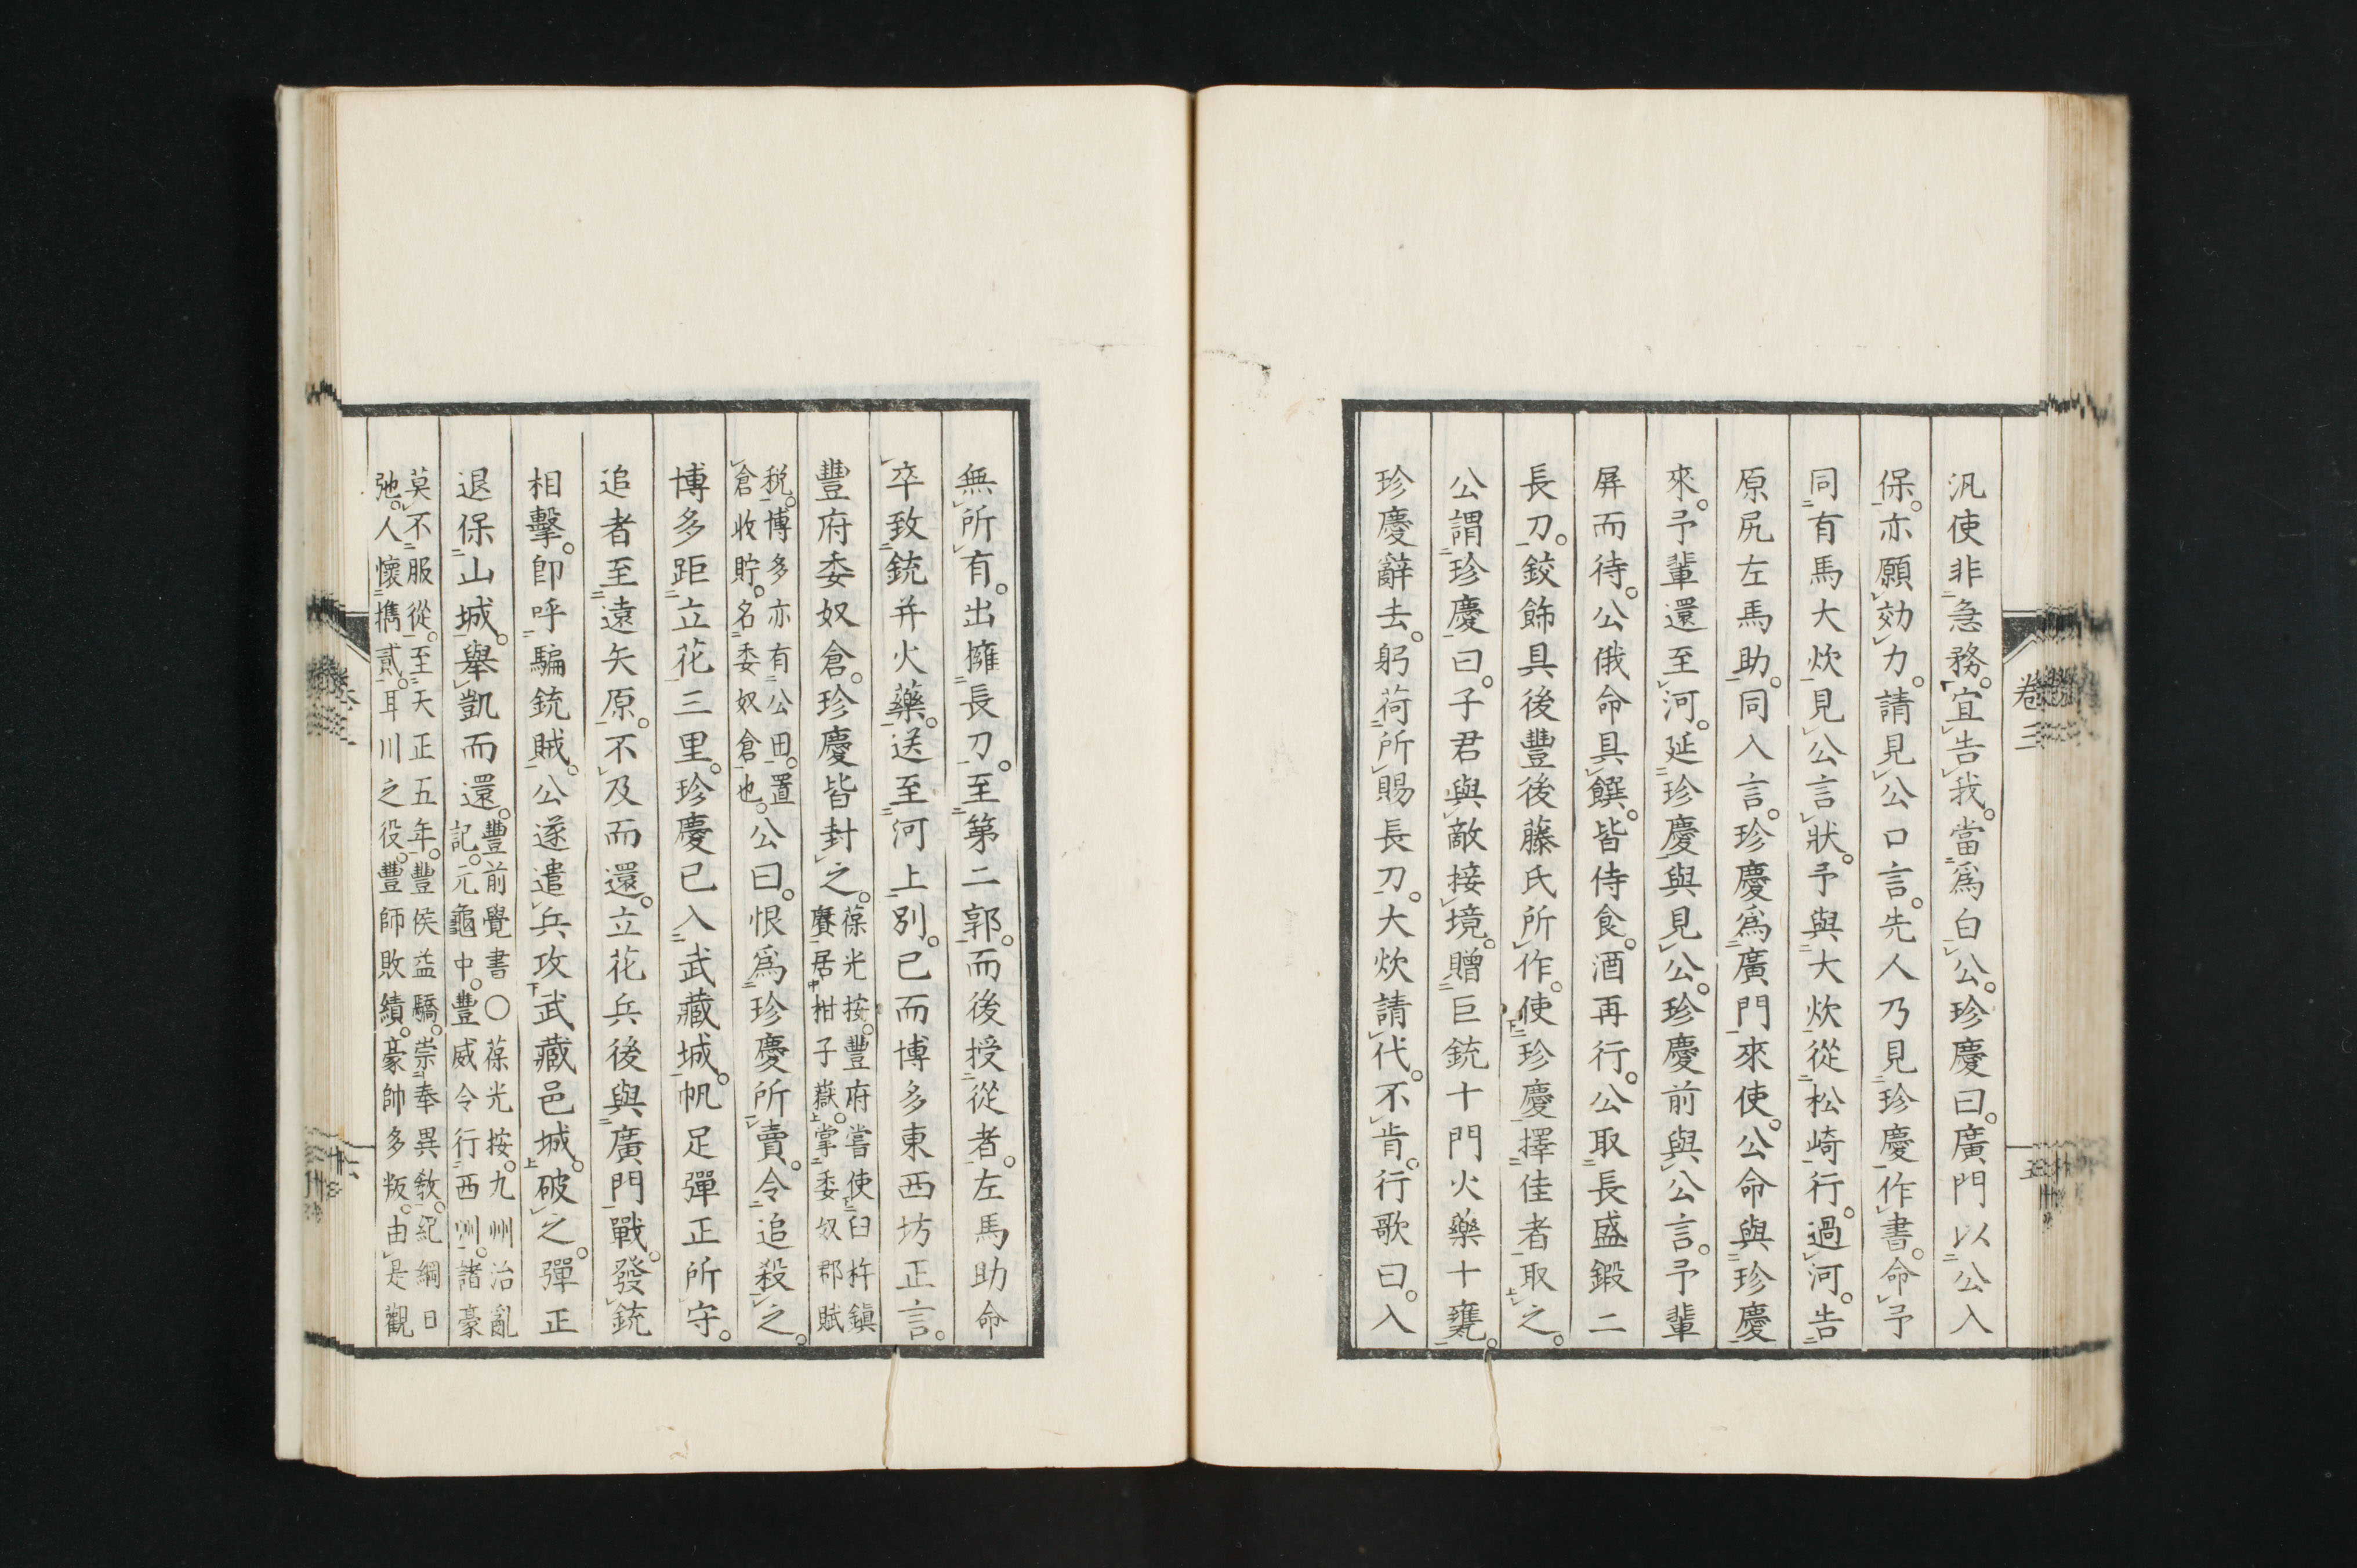 汎使非急務。宜告我。當爲白公。珍慶曰。廣門以公入
保。亦願効力。請見公口言。先人乃見珍慶作書。命予
同有馬大炊見公言狀。予與大炊從松崎行。過河。告
原尻左馬助。同入言。珍慶爲廣門來使。公命與珍慶
來。予輩還至河。延珍慶與見公。珍慶前與公言。予輩
屏而待。公俄命具饌。皆侍食。酒再行。公取長盛鍛二
長刀。鉸飾具後豐後藤氏所作。使珍慶擇佳者取之。
公謂珍慶曰。子君與敵接境。贈巨銃十門火藥十甕。
珍慶辭去。躬荷所賜長刀。大炊請代。不肯。行歌曰。入
卷三
無所有。出擁長刀。至第二郭。而後授從者。左馬助命
卒致銃并火藥。送至河上別。已而博多東西坊正言。
豐府委奴倉。珍慶皆封之。葆光按。豐府嘗使臼杵鎭
賡居柑子嶽。掌委奴郡賦
税。博多亦有公田。置
倉收貯。名委奴倉也。公曰。恨爲珍慶所賣。令追殺之。
博多距立花三里。珍慶已入武藏城。帆足彈正所守。
追者至遠矢原。不及而還。立花兵後與廣門戰。發銃
相擊。卽呼騙銃賊。公遂遣兵攻武藏邑城。破之。彈正
退保山城。舉凱而還。豐前覺書○葆光按。九州治亂
記。元龜中。豐威令行西州。諸豪
莫不服從。至天正五年。豐侯益驕。崇奉異教。紀綱日
弛。人懷攜貳。耳川之役。豐師敗績。豪帥多叛。由是觀